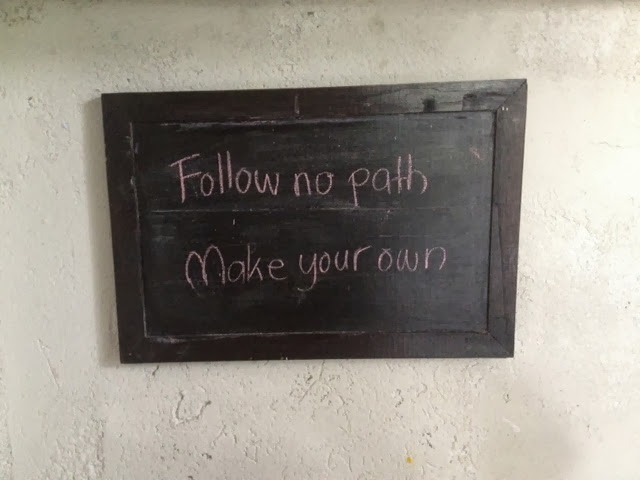 Follow no path
Make your own